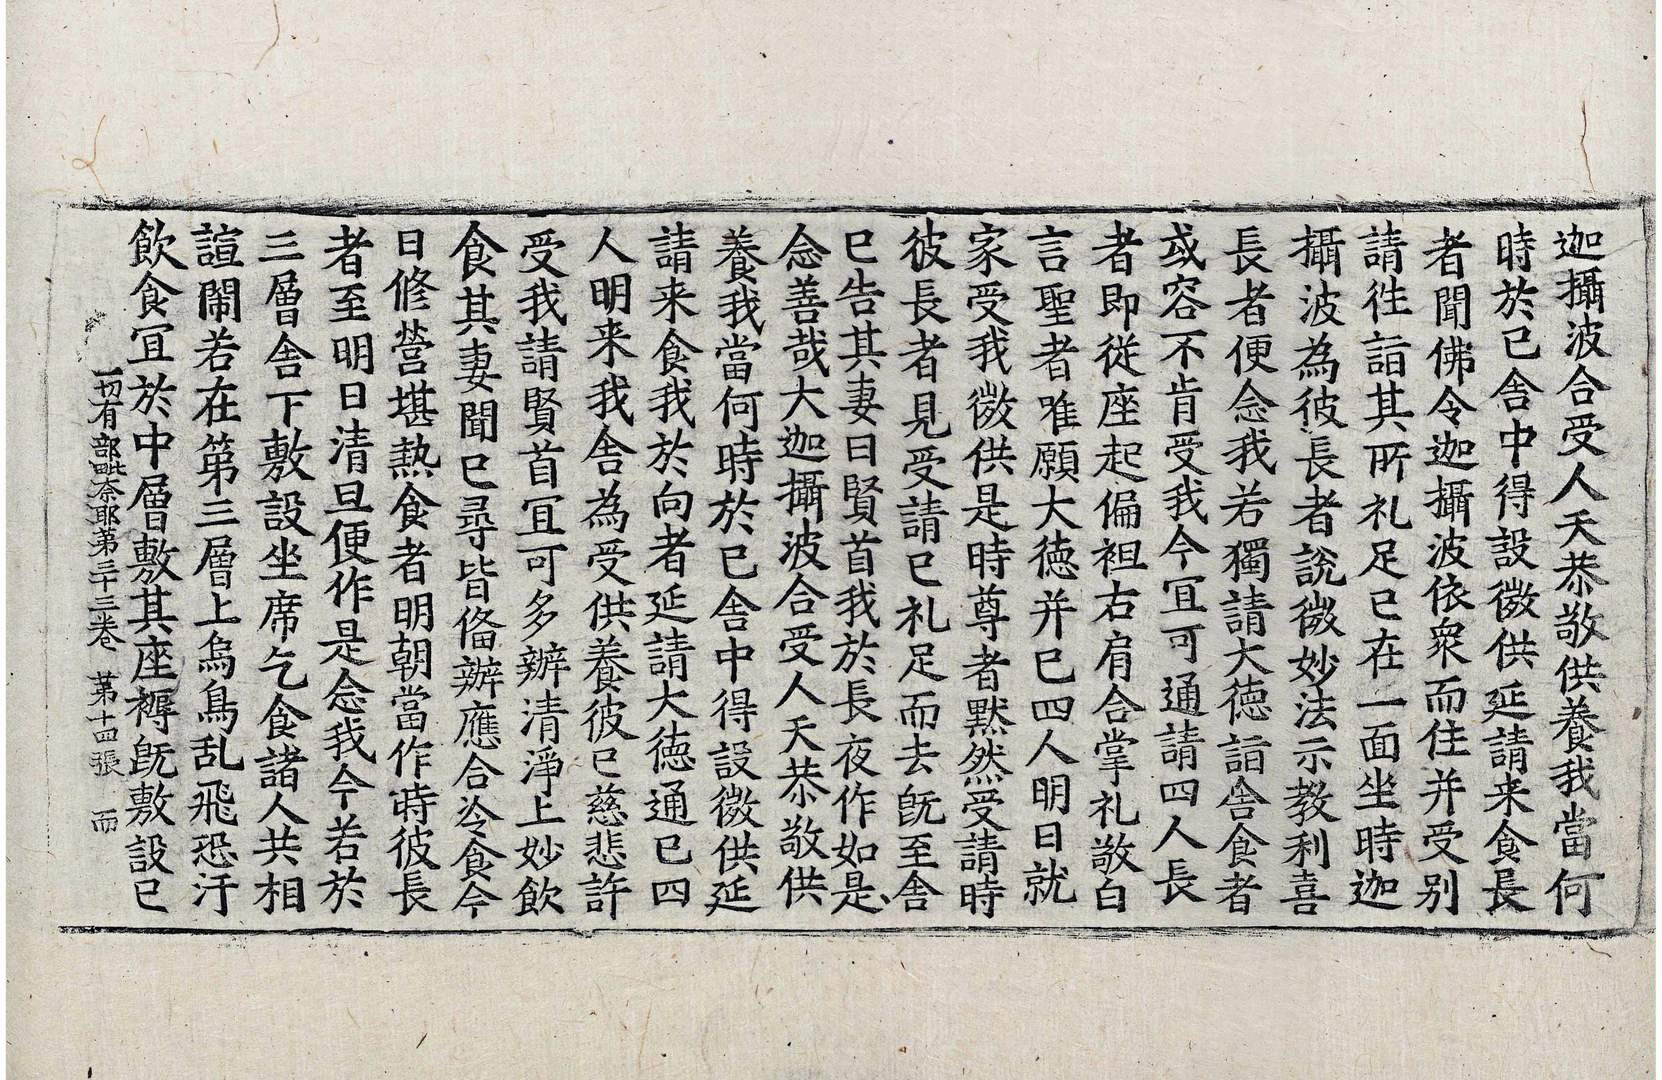 迦攝波合受人天恭敬供養我當何
時於已舍中得設微供延請来食長
者聞佛令迦攝波依衆而住并受别
請徃詣其所礼足已在一面坐時迦
攝波為彼長者説微妙法示教利喜
長者便念我若獨請大德詣舍食者
或容不肯受我今冝可通請四人長
者即從座起偏袒右肩合掌礼敬白
言聖者唯願大德并已四人明日就
家受我微供是時尊者黙然受請時
彼長者見受請已礼足而去既至舍
已告其妻曰賢首我於長夜作如是
念善哉大迦攝波合受人天恭敬供
養我當何時於已舍中得設微供延
請来食我於向者延請大德通已四
人明来我舍為受供養彼已慈悲許
受我請賢首冝可多辦清淨上妙飲
食其妻聞已尋皆俻辦應合冷食今
日修營堪熱食者明朝當作時彼長
者至明日清旦便作是念我今若於
三層舍下敷設坐席乞食諸人共相
諠閙若在第三層上烏鳥乱飛恐汙
飲食冝於中層敷其座褥既敷設已
一切有部毗奈耶第三十三卷 第十四張 而